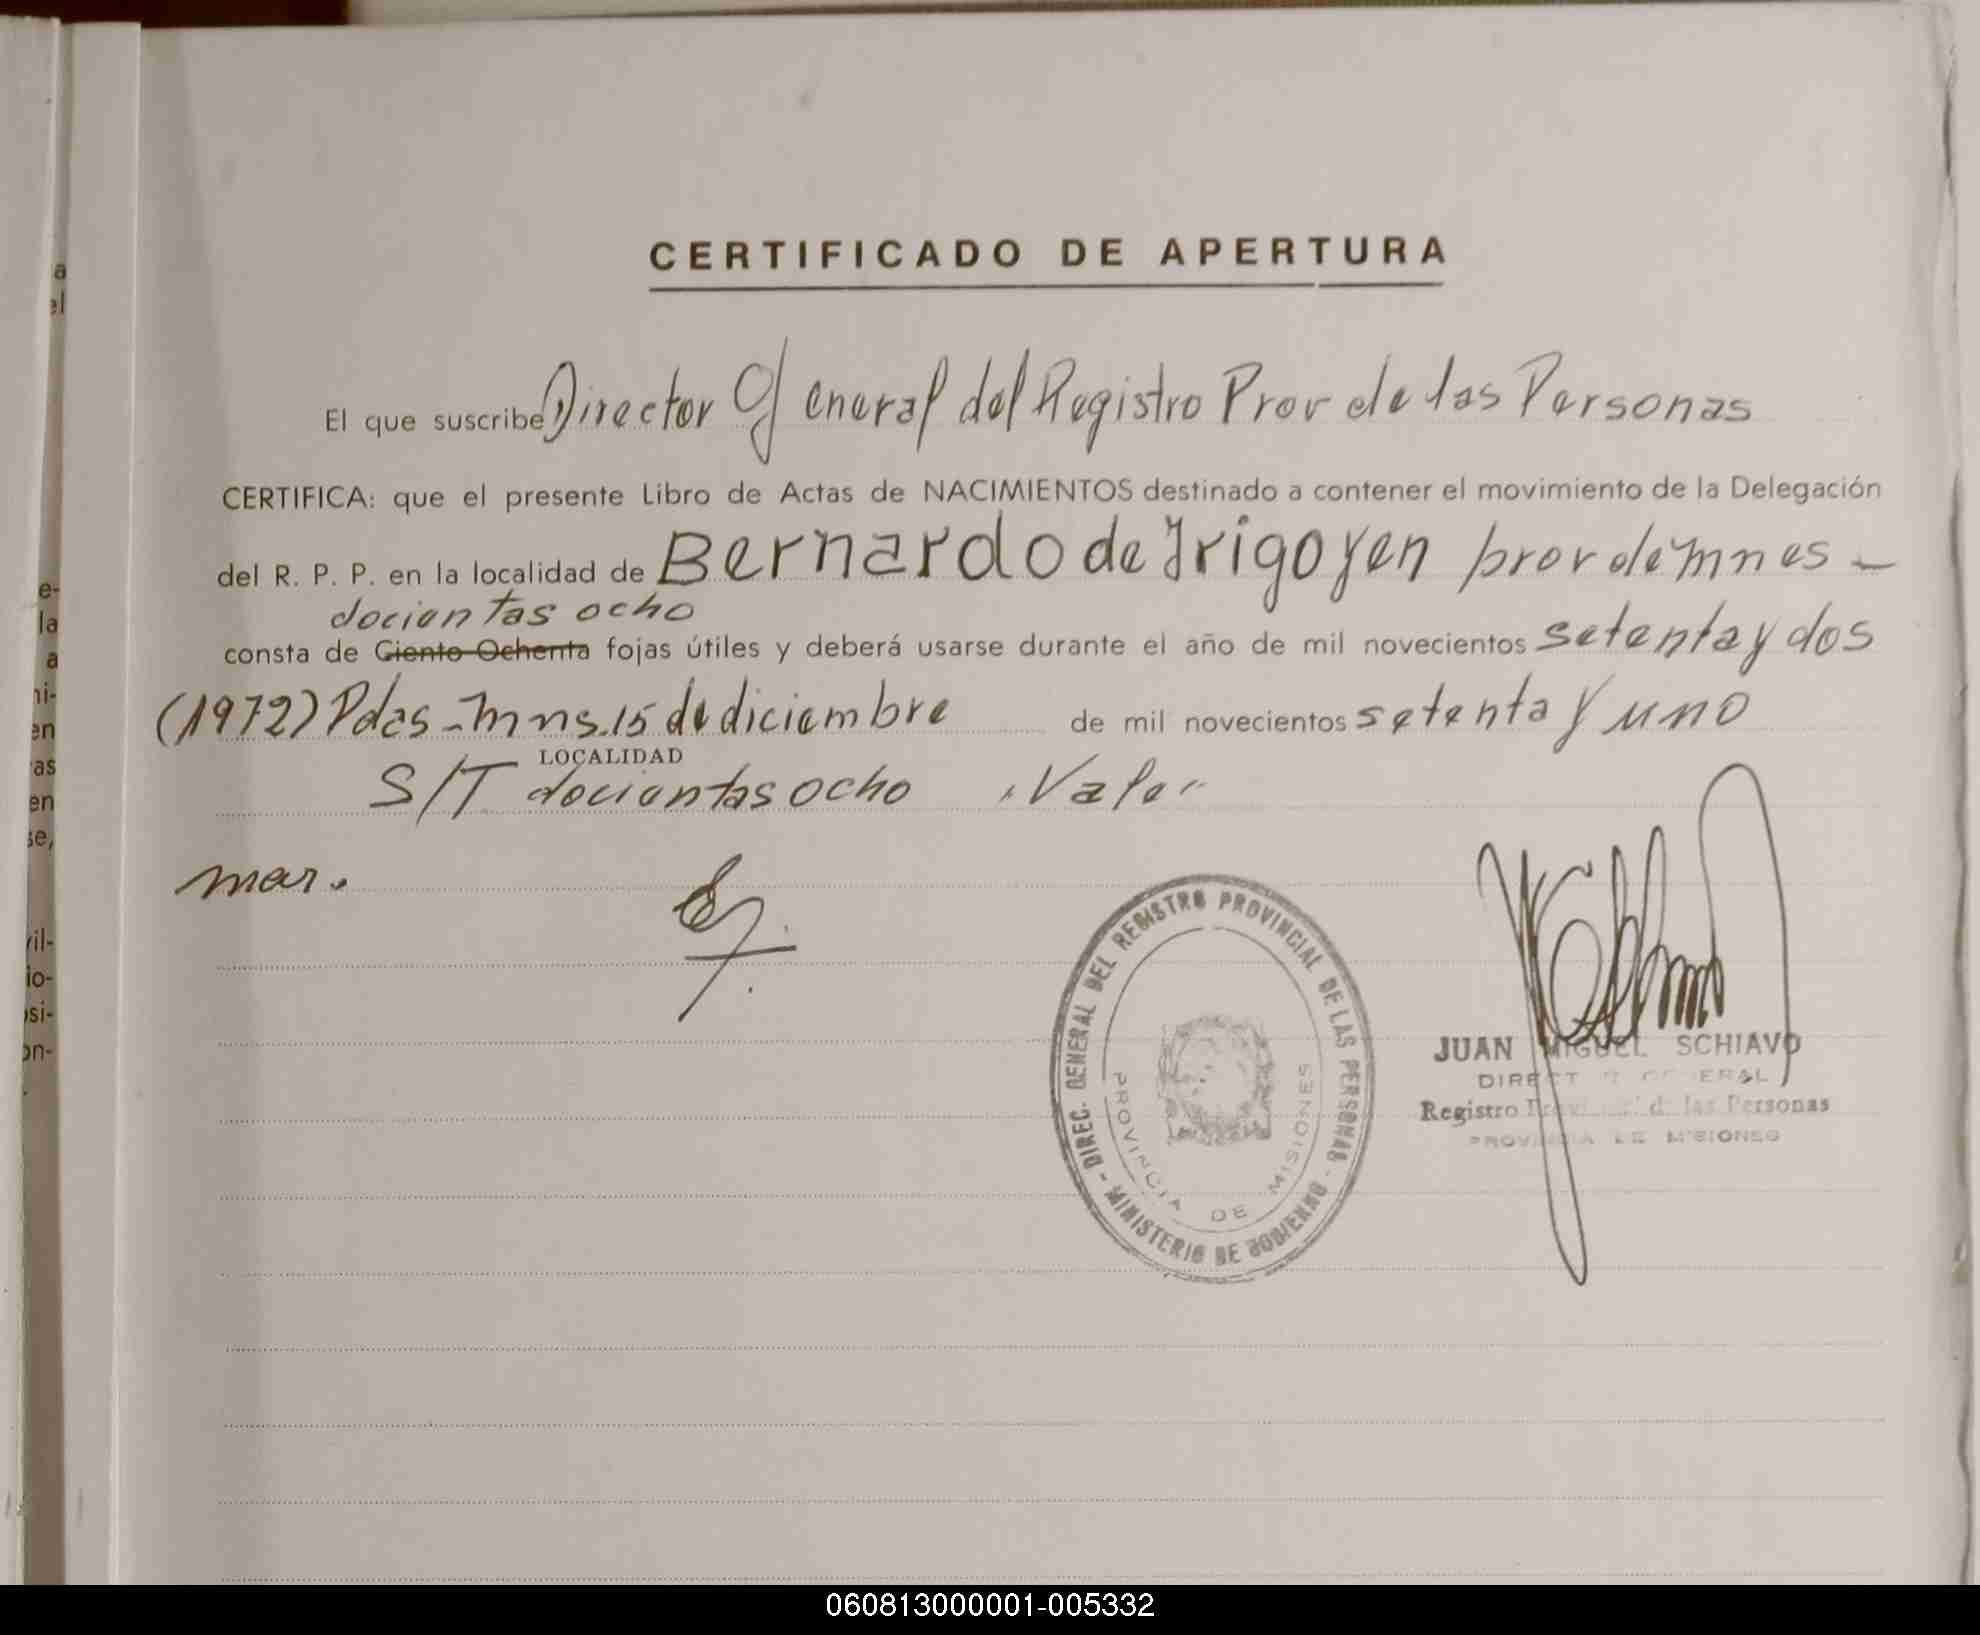 CERTIFICADO DE APERTURA
El que suscribe Director General del Registro Prov de las Personas
CERTIFICA: que el presente Libro de Actas de NACIMIENTOS destinado a contener el movimiento de la Delegación
del R. P. P. en la localidad de Bernardo de Irigoyen prov de mnes -
docientas ocho
consta de Ciento Ochenta fojas útiles y deberá usarse durante el año de mil novecientos setenta y dos
(1972) Pdas - Mns. 15 de diciembre de mil novecientos setenta y uno
LOCALIDAD
S/T docientas ocho Vale
mar.
DIREC. GENERAL DEL REGISTRO PROVINCIAL DE LAS PERSONAS - MINISTERIO DE GOBIERNO -
PROVINCIA DE MISIONES
JUAN MIGUEL SCHIAVO
DIRECTOR GENERAL
Registro Provincial de las Personas
PROVINCIA DE MISIONES
a
el
e-
la
a
ni-
en
as
en
se,
vil-
io-
si-
on-
060813000001-005332